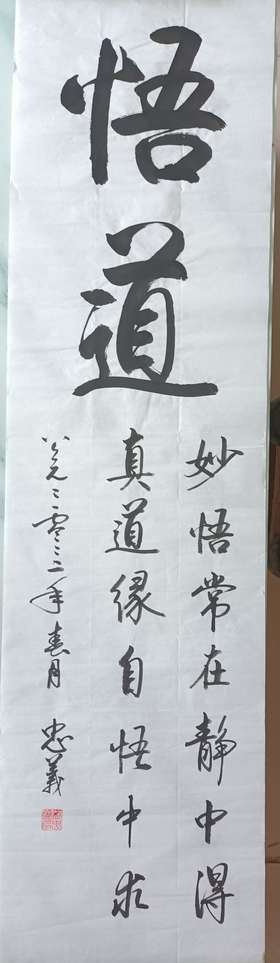 悟道
妙悟常在静中得
真道缘自悟中求
公元二零二三年春月 忠義